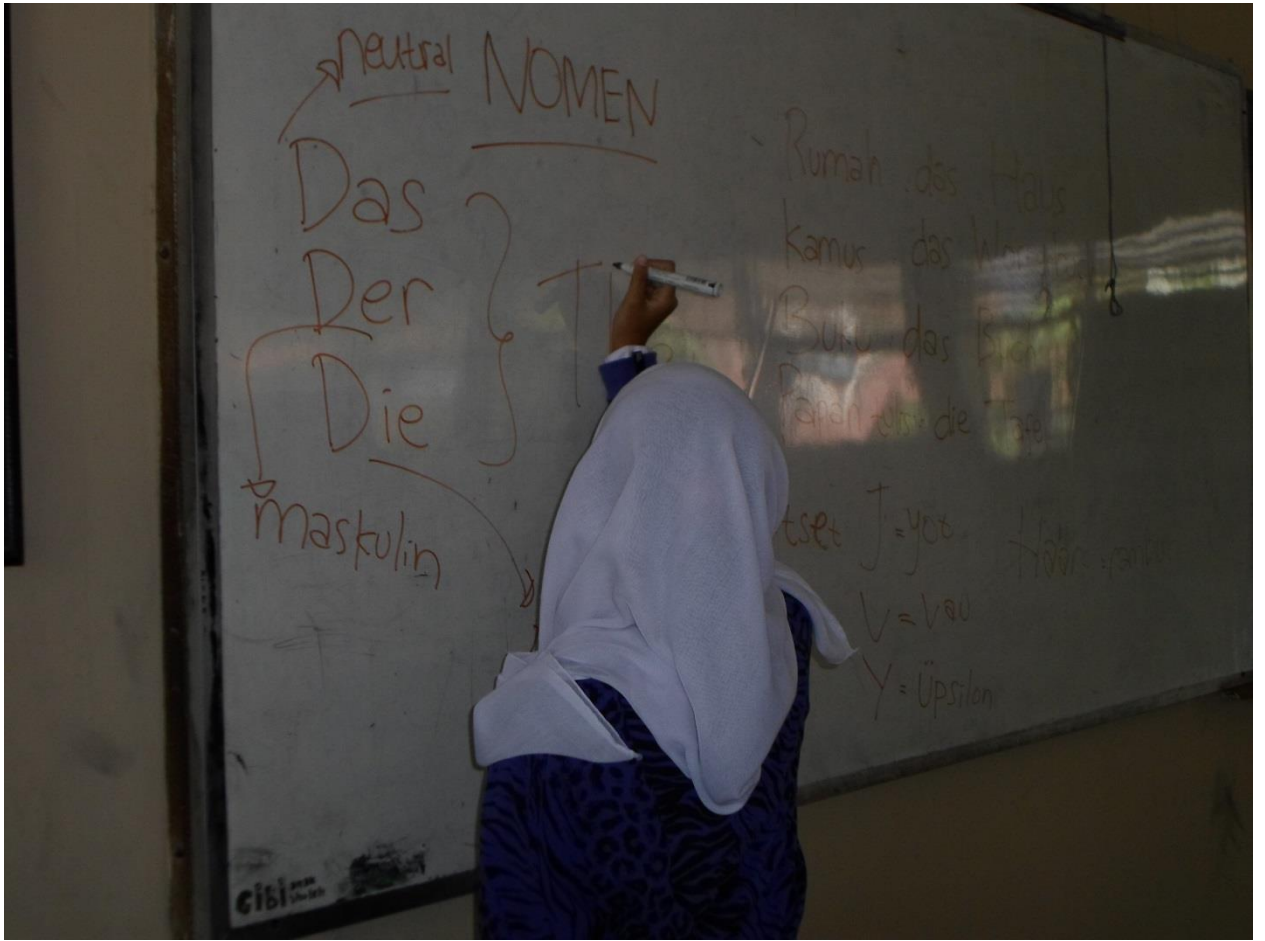 neutral
NOMEN
Das
Der
Die
maskulin
T
Rumah das Haus
Kamus das
Buku das
Papan tulis die Tafel
tset J = yot
V = Vau
Y = Üpsilon
Cibi